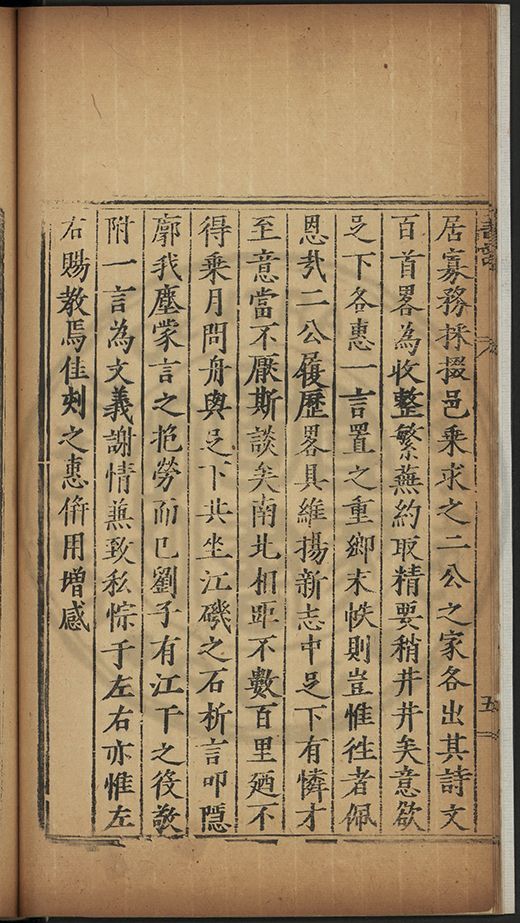 居寡務採掇邑乘求之二公之家各出其詩文
百首畧為收整繁蕪約取精要稍井井矣意欲
足下各惠一言置之重鄉末帙則豈惟徃者佩
恩㢤二公履歷畧具維揚新志中足下有憐才
至意當不厭斯談矣南北相距不數百里廼不
得乘月問舟與足下共坐江磯之石析言叩隱
廓我塵蒙言之扼勞而已劉子有江干之役敬
附一言為文義謝情兼致私悰于左右亦惟左
右賜教焉佳刻之惠倂用增感
五